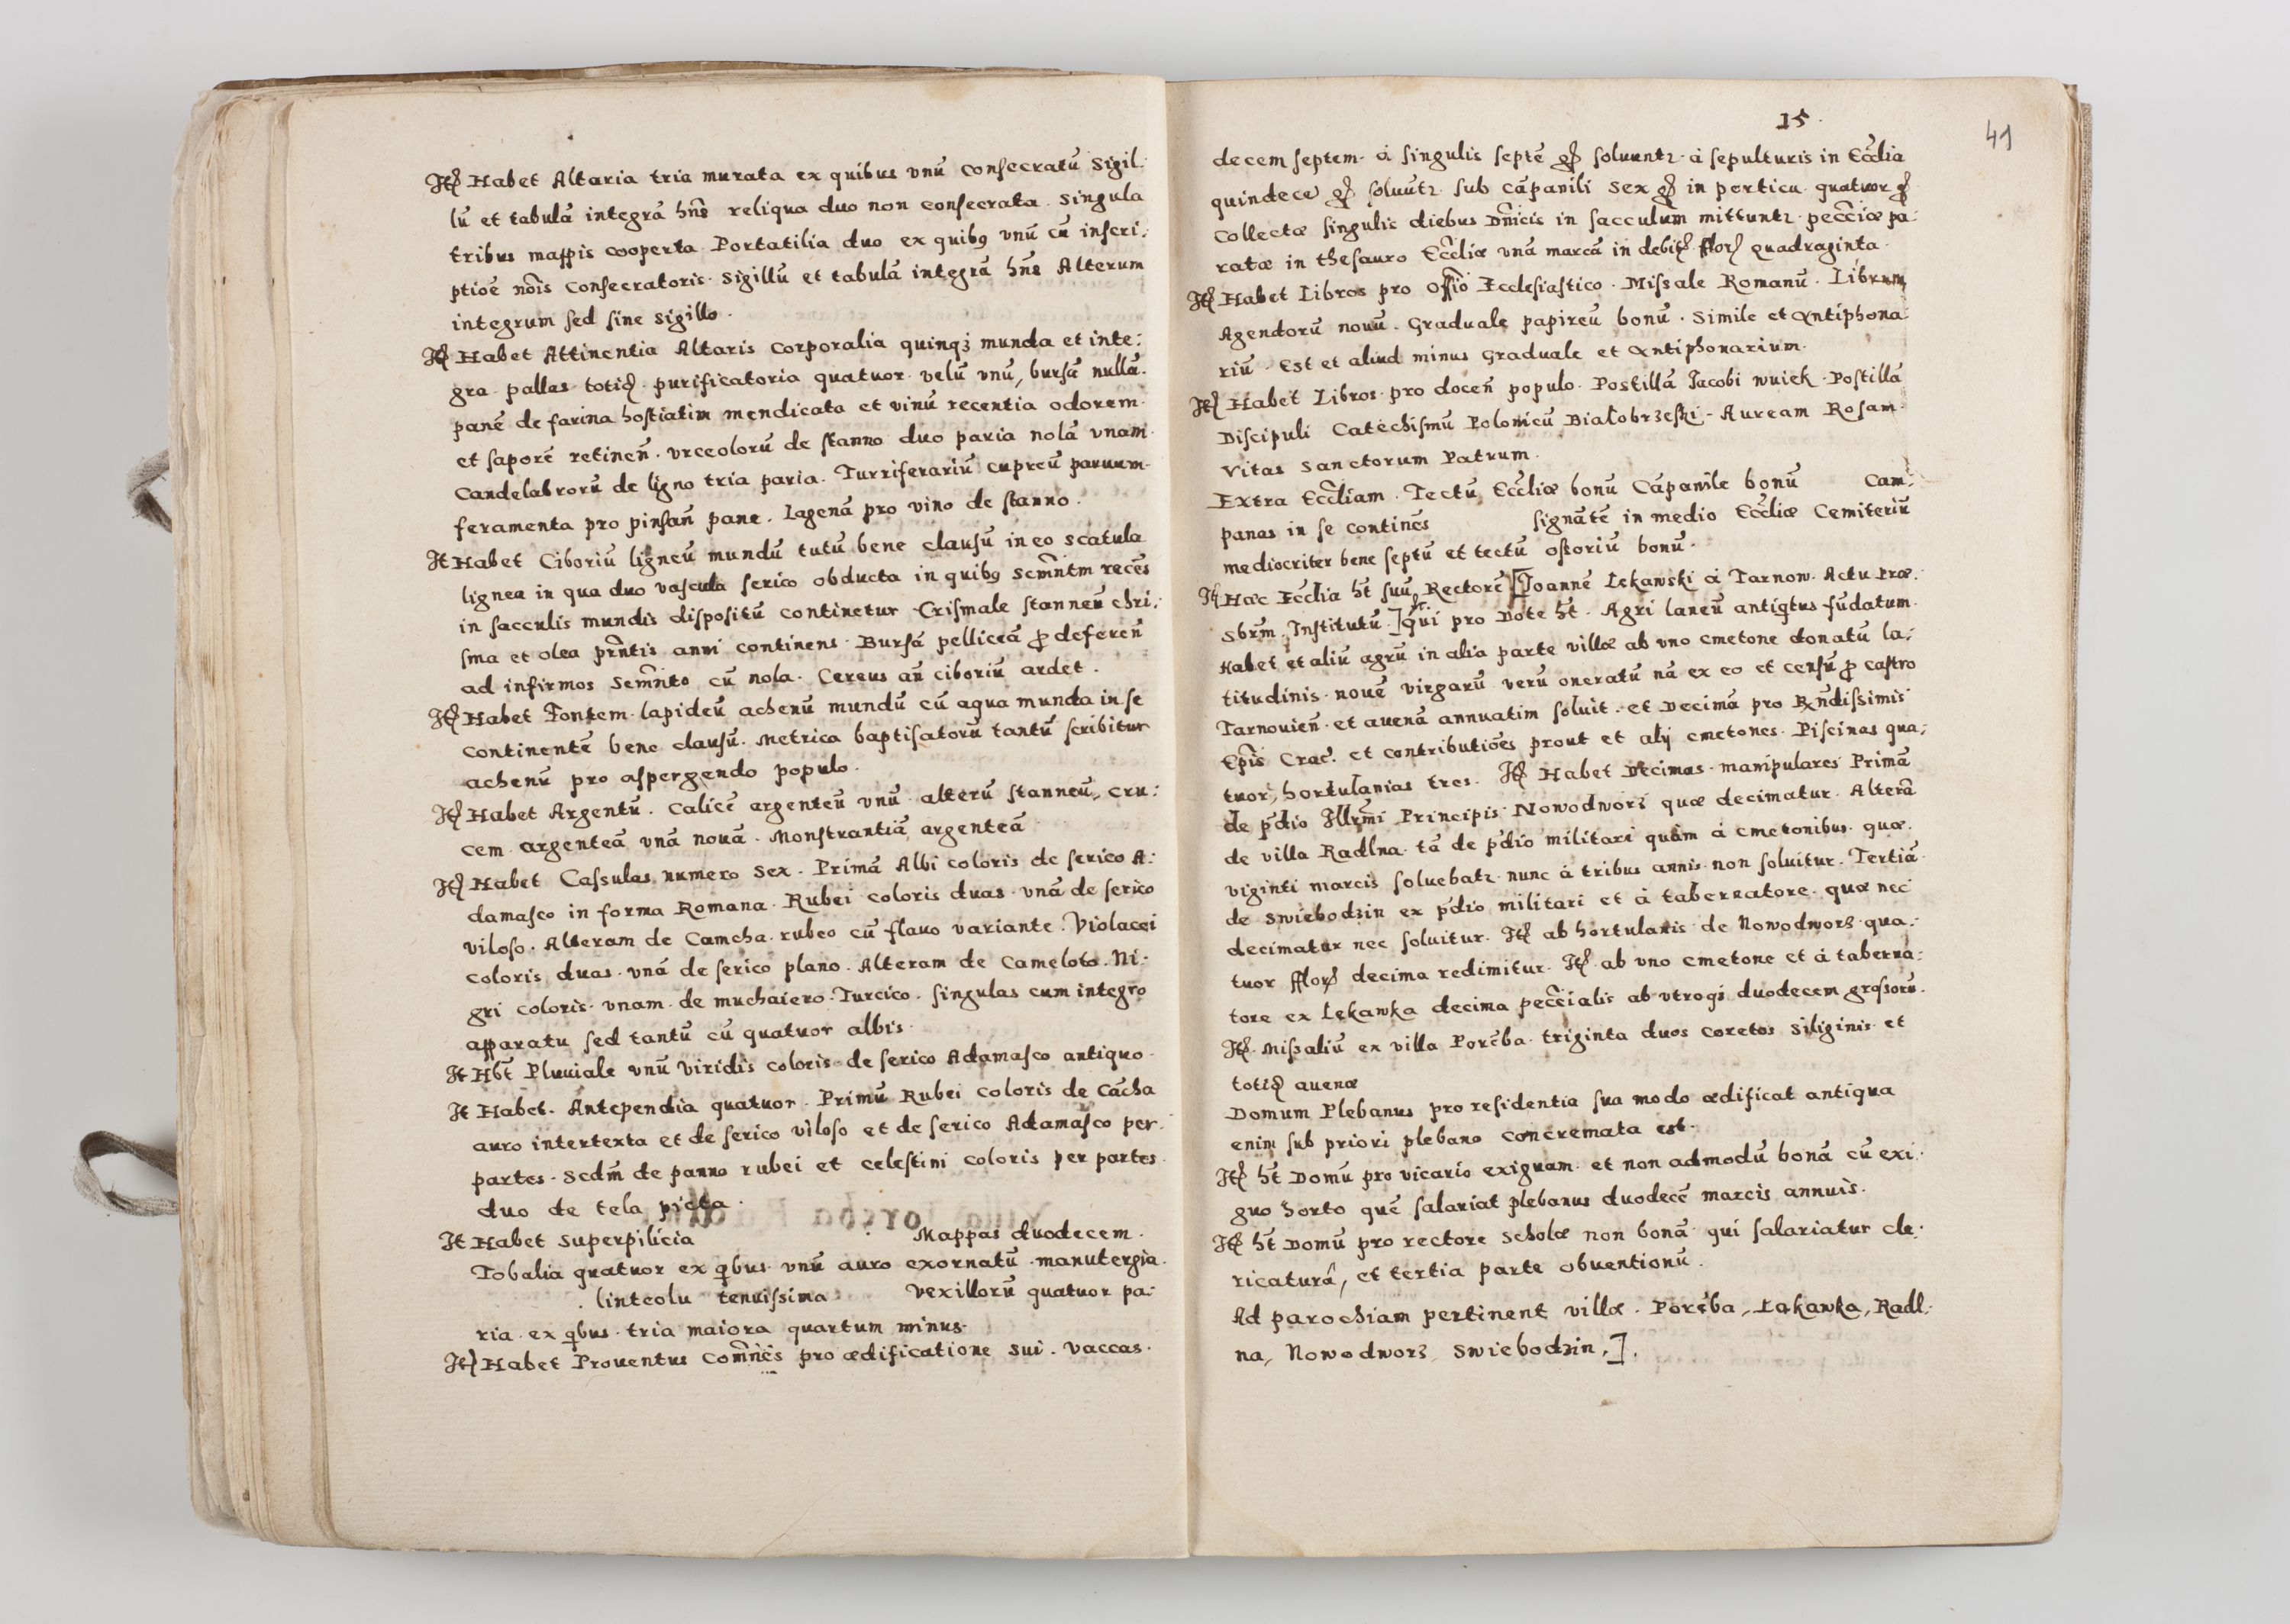 Itē Habet Altaria tria murata ex quibus vnū consecratū Sigil:
lū et tabulā integrā hn̄s reliqua duo non consecrata. Singula
tribus mappis cooperta. Portatilia duo ex quibꝯ vnū cū inscri:
ptiōē nōīs Consecratoris. Sigillū et tabulā integrā hn̄s Alterum
integrum sed sine Sigillo.
Itē Habet Attinentia Altaris Corporalia quinqꝫ munda et inte:
gra. pallas totiꝺ. purificatoria quatuor. velū vnū, bursā nullā.
panē de farina hostiatim mendicata et vinū recentia odorem.
et saporē retinen̄. vrceolorū de stanno duo paria nolā vnam.
Candelabrorū de ligno tria paria. Turriferariū cupreū paruum.
feramenta pro pinsan̄ pane. Lagenā pro vino de stanno.
It Habet Ciboriū ligneū mundū tutū bene clausū in eo scatula
lignea in qua duo vascula serico obducta in quibꝯ Scm̄ntm recēs
in sacculis mundis dispositū continetur Crismale stanneū chri:
sma et olea prn̄tis anni continens. Bursā pelliceā ꝓ deferen̄
ad infirmos Sem̄nto cū nola. Cereus an̄ ciboriū ardet.
Itē Habet Fontem lapideū achenū mundū cū aqua munda in se
continentē bene clausū. Metrica baptisatorū tantū scribitur
achenū pro aspergendo populo.
Itē Habet Argentū. Calicē argenteū vnū alterū stanneū, cru:
cem argenteā vnā nouā. Monstrantiā argenteā
Itē Habet Casulas numero Sex. Primā Albi coloris de serico A:
damasco in forma Romana. Rubei coloris duas vnā de serico
viloso. Alteram de Camcha rubeo cū flauo variante. Violacei
coloris duas. vnā de serico plano. Alteram de Cameloto. Ni:
gri coloris vnam de muchaiero Turcico. singulas cum integro
apparatu sed tantū cū quatuor albis.
It Hb̄t Pluuiale vnū viridis coloris de serico Adamasco antiquo.
It Habet. Antependia quatuor. Primū Rubei coloris de Cācha
auro intertexta et de serico viloso et de serico Adamasco per
partes. Scdm̄ de panno rubei et celestini coloris per partes.
duo de tela picta.
It Habet Superpilicia Mappas duodecem.
Tobalia quatuor ex qͥbus vnū auro exornatū. manutergia.
linteolu tenuissima Vexillorū quatuor pa:
ria. ex qͥbus tria maiora quartum minus.
Itē Habet Prouentus Com̄nēs pro ædificatione sui. Vaccas.
15.
41
decem septem. à singulis septē gꝭ soluuntꝛ. à sepulturis in Ecc̄lia
quindecē gꝭ soluūtꝛ sub cāpanili Sex gꝭ in porticu quatuor gꝭ
Collectæ singulis diebus Dn̄icis in sacculum mittuntꝛ. pecc̄iæ pa:
ratæ in thesauro Ecc̄liæ vnā marcā in debitꝭ fflorꝭ quadraginta.
Itē Habet Libros pro Offīō Ecclesiastico. Missale Romanū. Librum
Agendorū nouū. Graduale papireū bonū. Simile et Antiphona:
riū. Est et aliud minus Graduale et Antiphonarium.
Itē Habet Libros pro docen̄ populo. Postillā Jacobi wuiek. Postillā
Discipuli Catechismū Polonicū Białobrzeski. Auream Rosam.
Vitas Sanctorum Patrum.
Extra Ecc̄liam. Tectū Ecc̄liæ bonū Cāpanile bonū Cam:
panas in se continēs signātē in medio Ecc̄liæ Cemiteriū
mediocriter bene septū et tectū ostoriū bonū.
It Hæc Ecc̄lia h̄t suū Rectorē [Joannē Lękawski à Tarnow. Actu Præ:
sbrm̄. Institutū.] qui pro Dote h̄t. Agri laneū antiqtus fūdatum.
Habet et aliū agrū in alia parte villæ ab vno cmetone donatū la:
titudinis nouē virgarū verū oneratū nā ex eo et censū ꝓ castro
Tarnouien̄ et auenā annuatim soluit. et Decimā pro Rn̄dissimis
Ep̄īs Crac̄. et contributiōēs prout et alij cmetones. Piscinas qua:
tuor, hortulanias tres. Itē Habet Decimas manipulares Primā
de p̄dio Illrm̄i Principis Nowodworz quæ decimatur. Alterā
de villa Radlna tā de p̄dio militari quàm à cmetonibus quæ
viginti marcis soluebatꝛ. nunc à tribus annis non soluitur. Tertiā
de Swiebodzin ex p̄dio militari et à tabernatore quæ nec
decimatur nec soluitur. Itē ab hortulanis de Nowodworz qua:
tuor fflorꝭ decima redimitur. Itē ab vno cmetone et à taberna:
tore ex Lękawka decima pecc̄ialis ab vtroqꝫ duodecem grossorū.
Itē. Missaliū ex villa Porēba triginta duos coretos Siliginis et
totiꝺ auenæ
Domum Plebanus pro residentia sua modo ædificat antiqua
enim sub priori plebano concremata est.
Itē h̄t Domū pro vicario exiguam et non admodū bonā cū exi:
guo horto quē salariat plebanus duodecē marcis annuis.
Itē h̄t Domū pro rectore Scholæ non bonā qui salariatur cle:
ricaturâ, et tertia parte obuentionū.
Ad parochiam pertinent villæ. Porēba, Łękawka, Radl:
na, Nowodworz, Swiebodzin,].